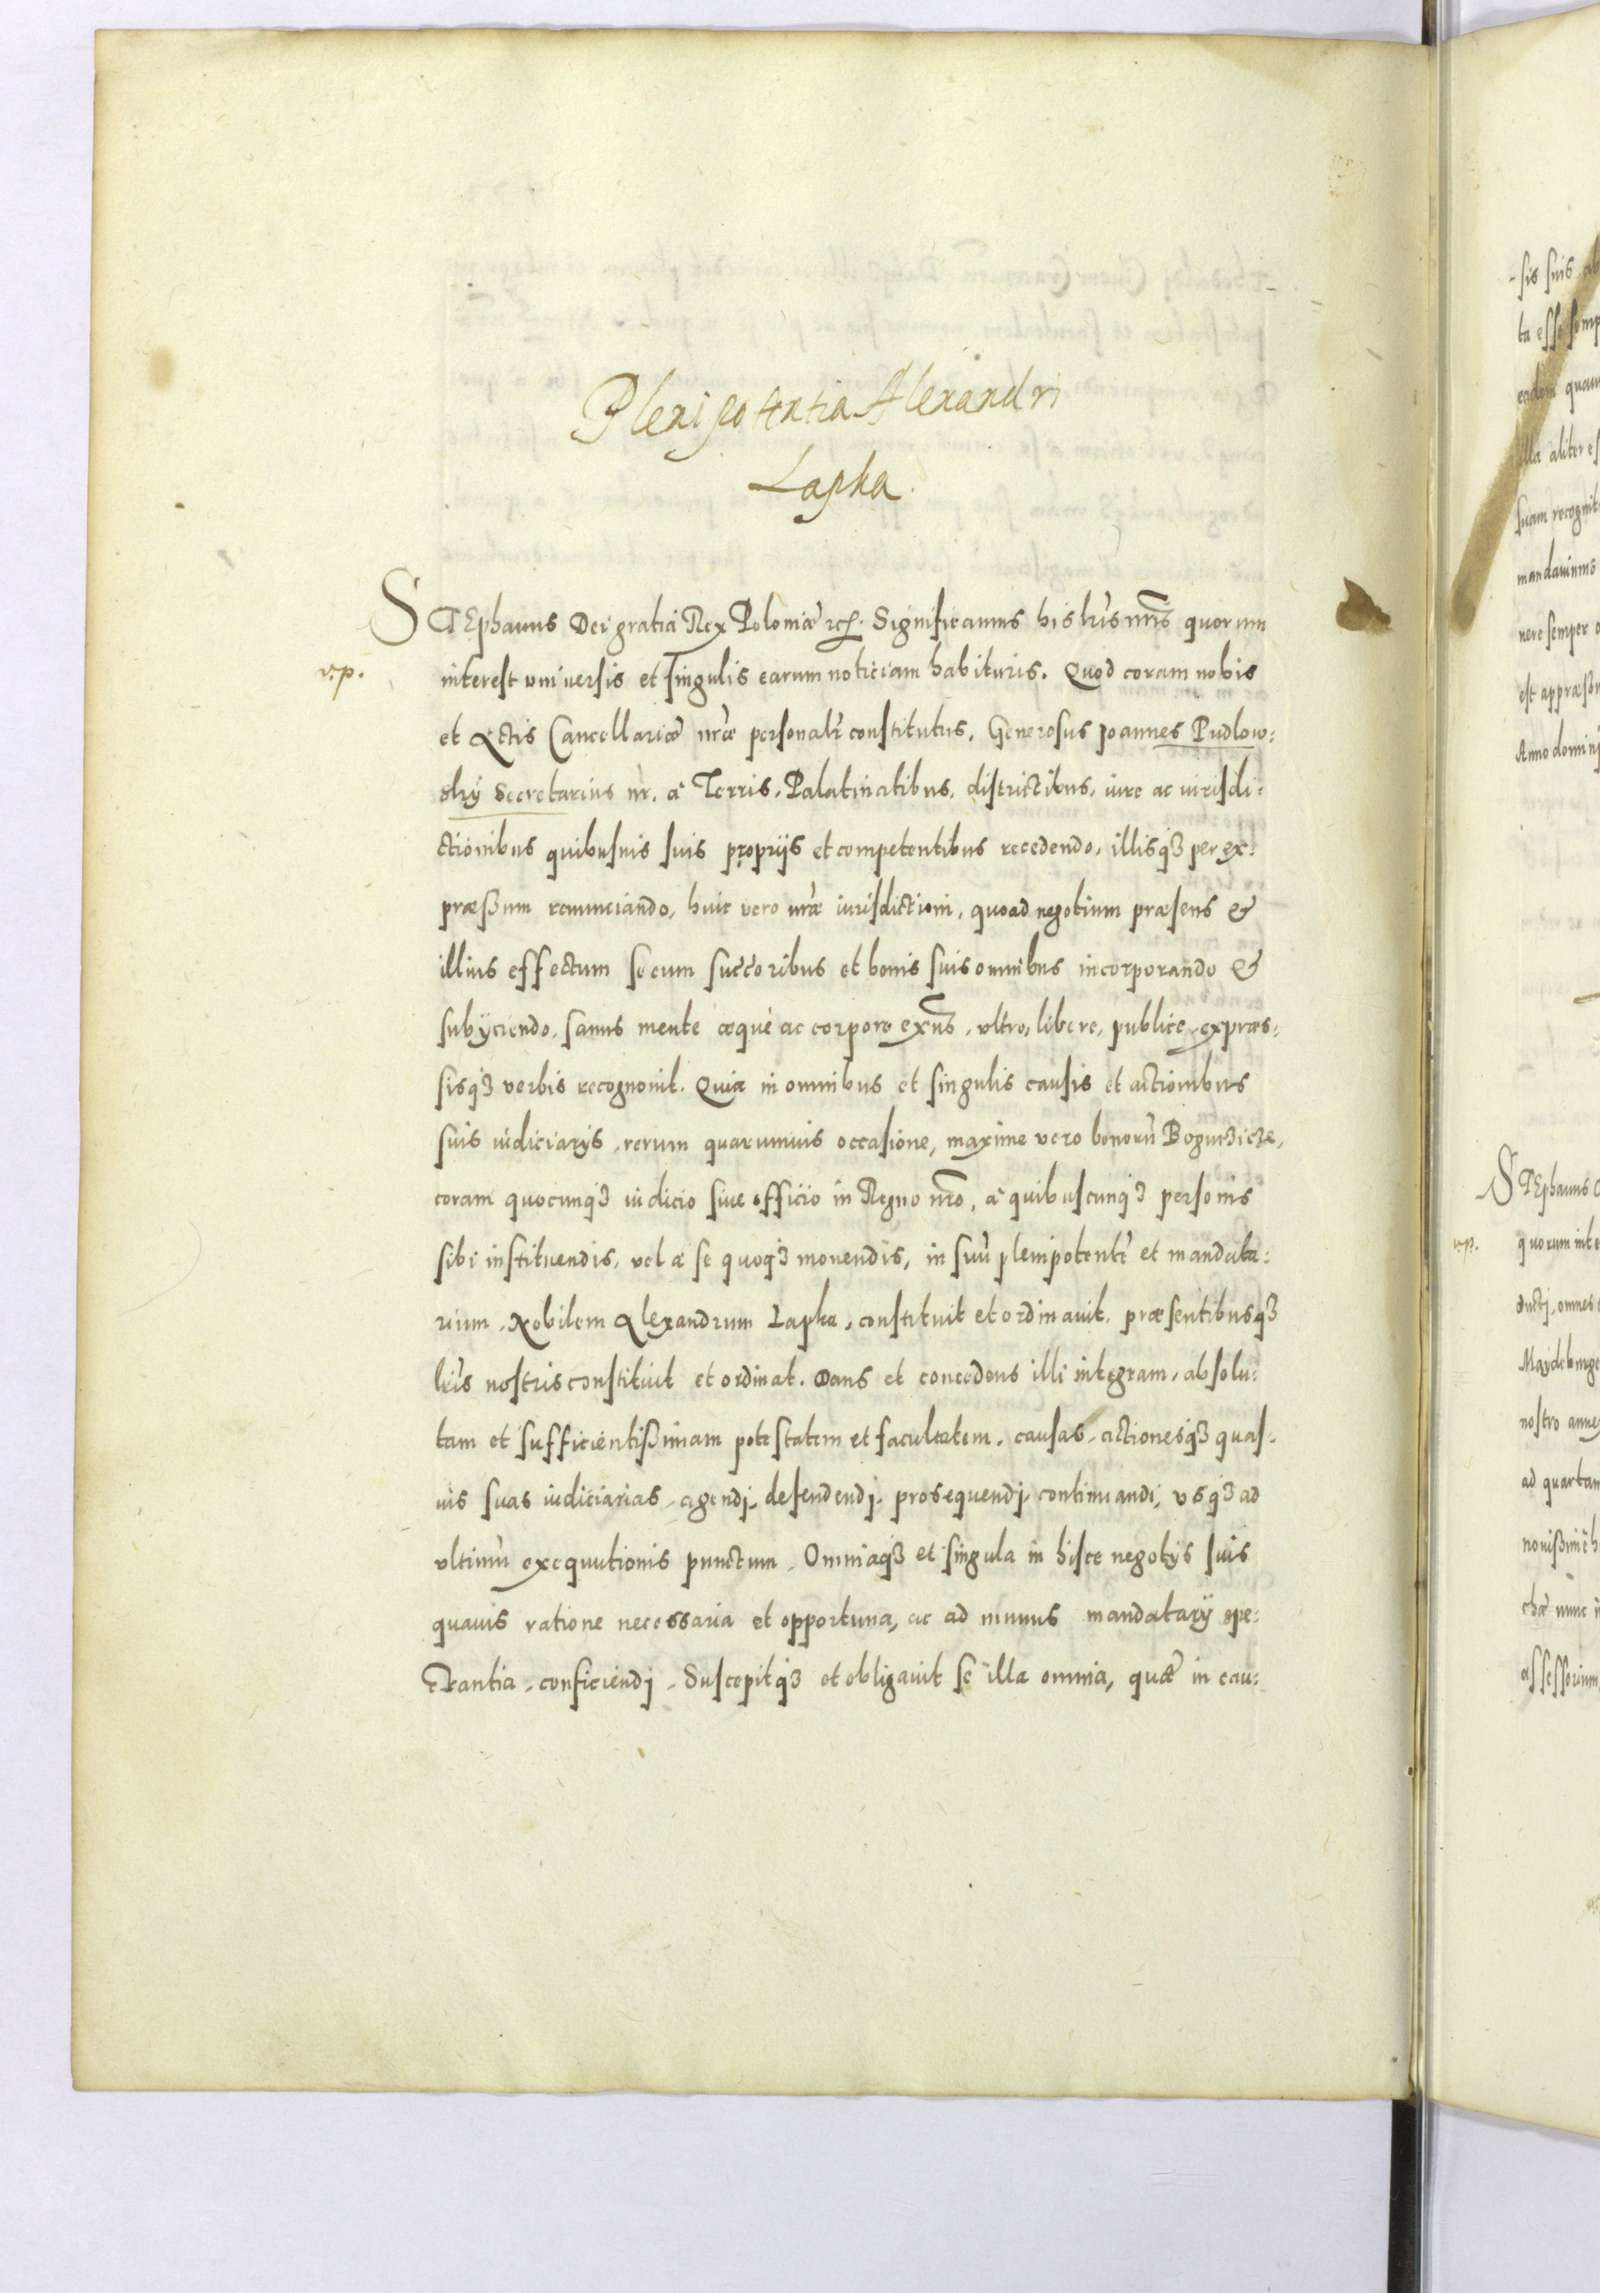 Plenipotentia Alexandri
Lapka.
STEphanus Dei gratia Rex Poloniæ etc. Significamus his lr̃is nr̃is quorum
v.p.
interest universis et singulis earum noticiam habituris. Quod coram nobis
et Actis Cancellariæ nr̃æ personalr̃ constitutus, Generosus Joannes Pudlow:
sky Secretarius nr̃, à Terris, Palatinatibus, districtibus, iure ac iurisdi:
ctionibus quibusuis suis proprijs et competentibus recedendo, illisq3 per ex:
præßum renunciando, huic vero nr̃æ iurisdictioni, quoad negotium præsens &
illius effectum se cum succ̃oribus et bonis suis omnibus incorporando &
subyciendo, sanus mente æquè ac corpore exñs, vltro, libere, publice expræs:
sisq3 verbis recognouit. Quia in omnibus et singulis causis et actionibus
suis iudiciarijs, rerum quarumuis occasione, maxime vero bonorũ Bogurzicze,
coram quocunq3 iudicio siue officio in Regno nr̃o, à quibuscunq3 personis
sibi instituendis, vel a se quoq3 mouendis, in suũ plenipotentẽ et mandata:
rium, Nobilem Alexandrum Lapka, constituit et ordinauit, præsentibusq3
lr̃is nostris constituit et ordinat. Dans et concedens illi integram, absolu:
tam et sufficientißimam potestatem et facultatem, causas, actionesq3 quas:
uis suas iudiciarias, agendj, defendendj, prosequendj, continuandi, vsq3 ad
vltimũ exequutionis punctum, Omniaq3 et singula in hisce negotijs suis
quauis ratione necessaria et opportuna, ac ad munus mandatarij spe:
ctantia, conficiendj, Suscepitq3 et obligauit se illa omnia, quæ in cau:
-sis suis
ta esse
eadem
illa aliter
suam
mandauimus
nere semper
est
Anno domini
STEphanus
v.p.
quorum
ducti, omnes
nostro
ad quartam
nunc
assessorium